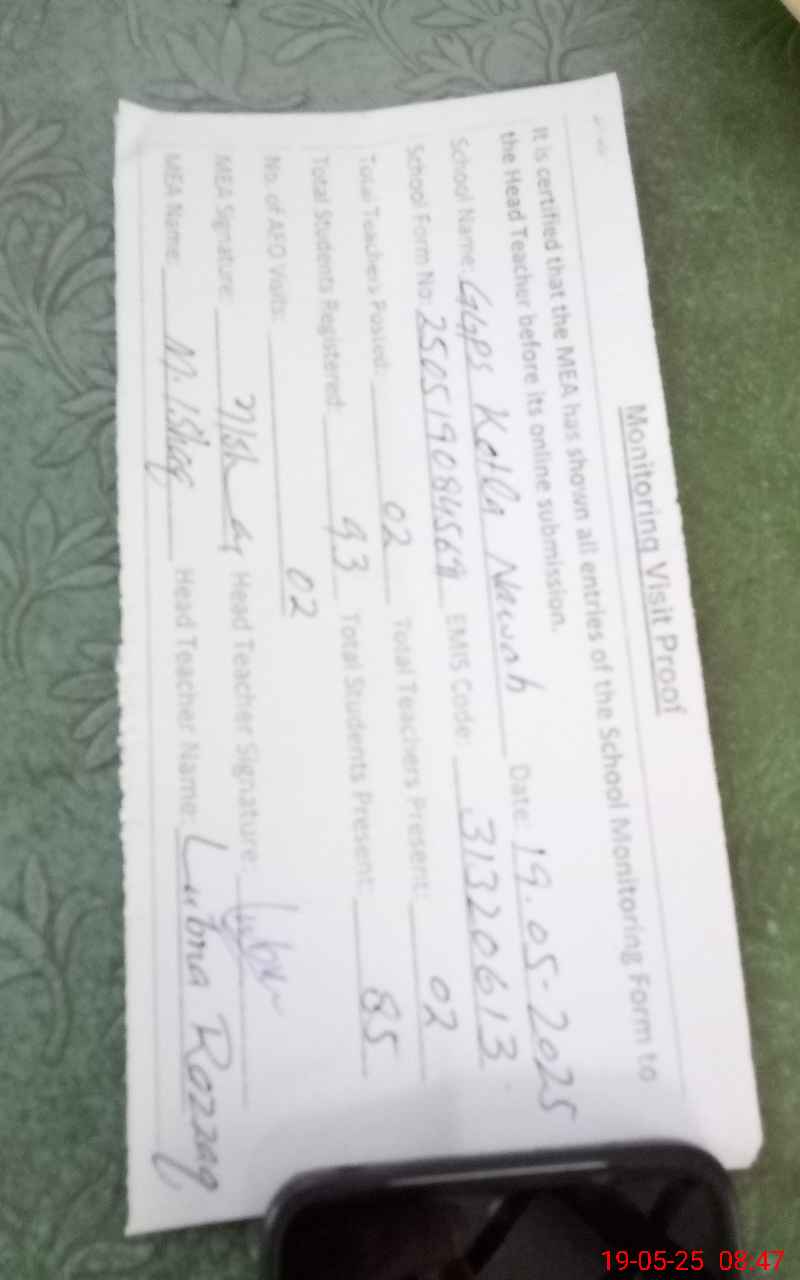 Monitoring Visit Proof
It is certified that the MEA has shown all entries of the School Monitoring Form to
the Head Teacher before its online submission.
School Name: GGPS Kotla Nawab Date: 19.05-2025
School Form No: EMIS Code: 31320613
Total Teachers Posted: 02 Total Teachers Present: 02
Total Students Registered: 93 Total Students Present: 85
No. of AEO Visits: 02
MEA Signature: Head Teacher Signature: Lubna
MEA Name: M. Ishaq Head Teacher Name: Lubna Razzaq
19-05-25 08:47